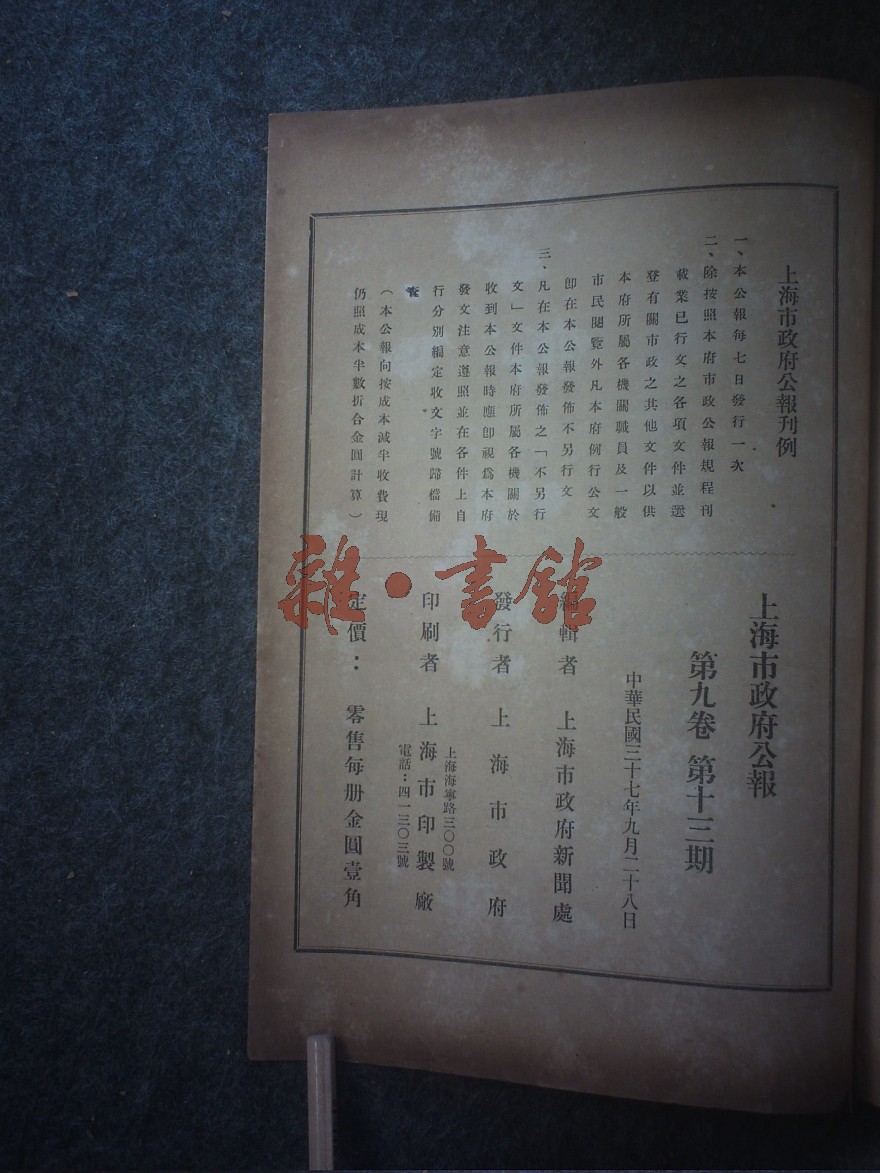 上海市政府公報刊例
一、本公報每七日發行一次
二、除按照本府市政公報規程刊
載業已行文之各項文件並選
登有關市政之其他文件以供
本府所屬各機關職員及一般
市民閱覽外凡本府例行公文
卽在本公報發佈不另行文
三、凡在本公報發佈之「不另行
文」文件本府所屬各機關於
收到本公報時應卽視爲本府
發文注意遵照並在各件上自
行分別編定收文字號歸檔備
查
（本公報向按成本減半收費現
仍照成本半數折合金圓計算）
上海市政府公報
第九卷 第十三期
中華民國三十七年九月二十八日
編輯者 上海市政府新聞處
發行者 上海市政府
印刷者 上海市印製廠
上海海寧路三〇〇號
電話：四一三〇三號
定價： 零售每册金圓壹角
雜·書館